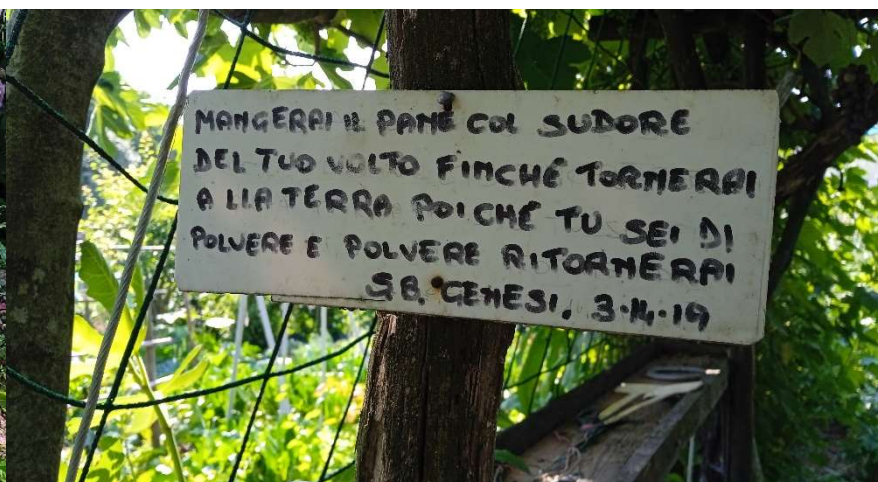 MANGERAI IL PANE COL SUDORE
DEL TUO VOLTO FINCHÉ TORNERAI
A LLA TERRA POICHÉ TU SEI DI
POLVERE E POLVERE RITORNERAI
S B. GENESI. 3-14-19